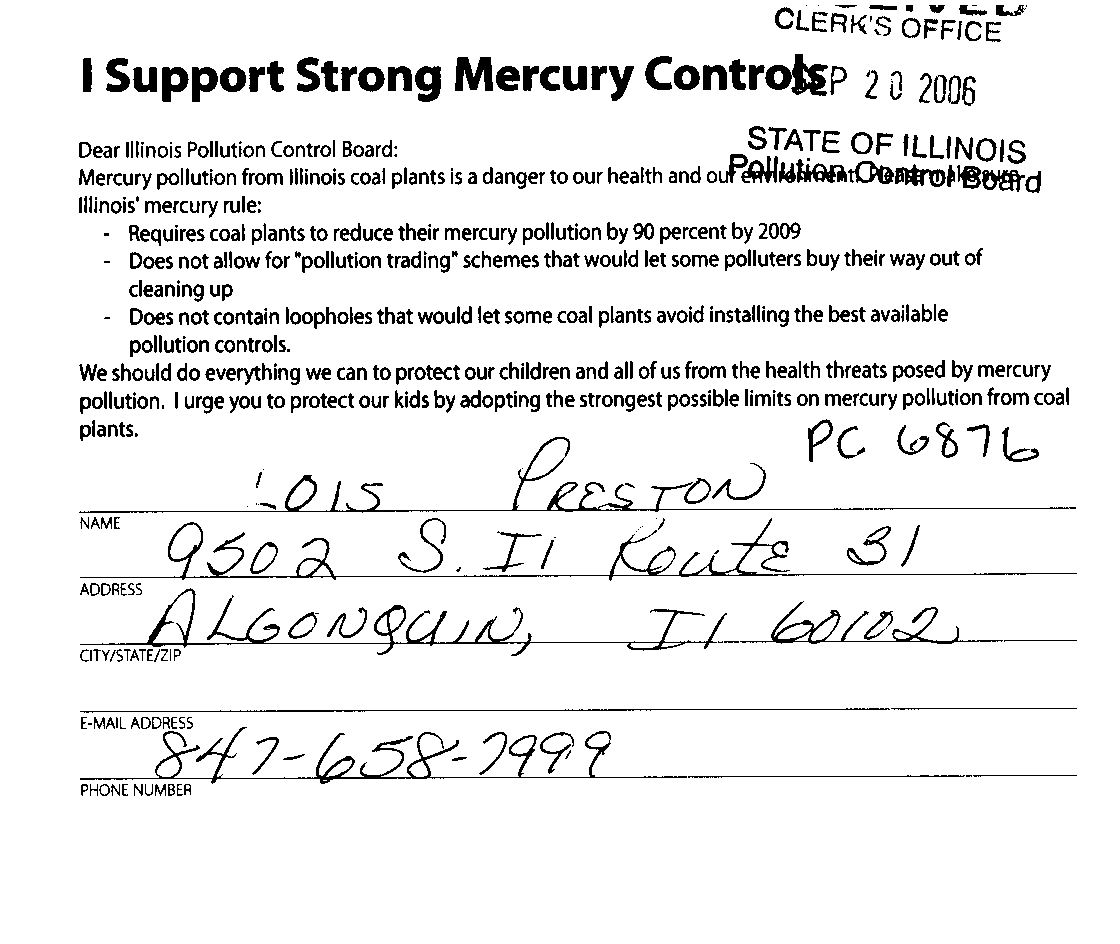 CLERK'S OFFICE
I Support Strong Mercury Controls
SEP 20 2006
STATE OF ILLINOIS
Pollution Control Board
Dear Illinois Pollution Control Board:
Mercury pollution from Illinois coal plants is a danger to our health and our environment. Please make sure
Illinois' mercury rule:
- Requires coal plants to reduce their mercury pollution by 90 percent by 2009
- Does not allow for "pollution trading" schemes that would let some polluters buy their way out of
cleaning up
- Does not contain loopholes that would let some coal plants avoid installing the best available
pollution controls.
We should do everything we can to protect our children and all of us from the health threats posed by mercury
pollution. I urge you to protect our kids by adopting the strongest possible limits on mercury pollution from coal
plants.
PC 6876
LOIS PRESTON
NAME
9502 S. Il Route 31
ADDRESS
ALGONQUIN, Il 60102
CITY/STATE/ZIP
E-MAIL ADDRESS
847-658-7999
PHONE NUMBER